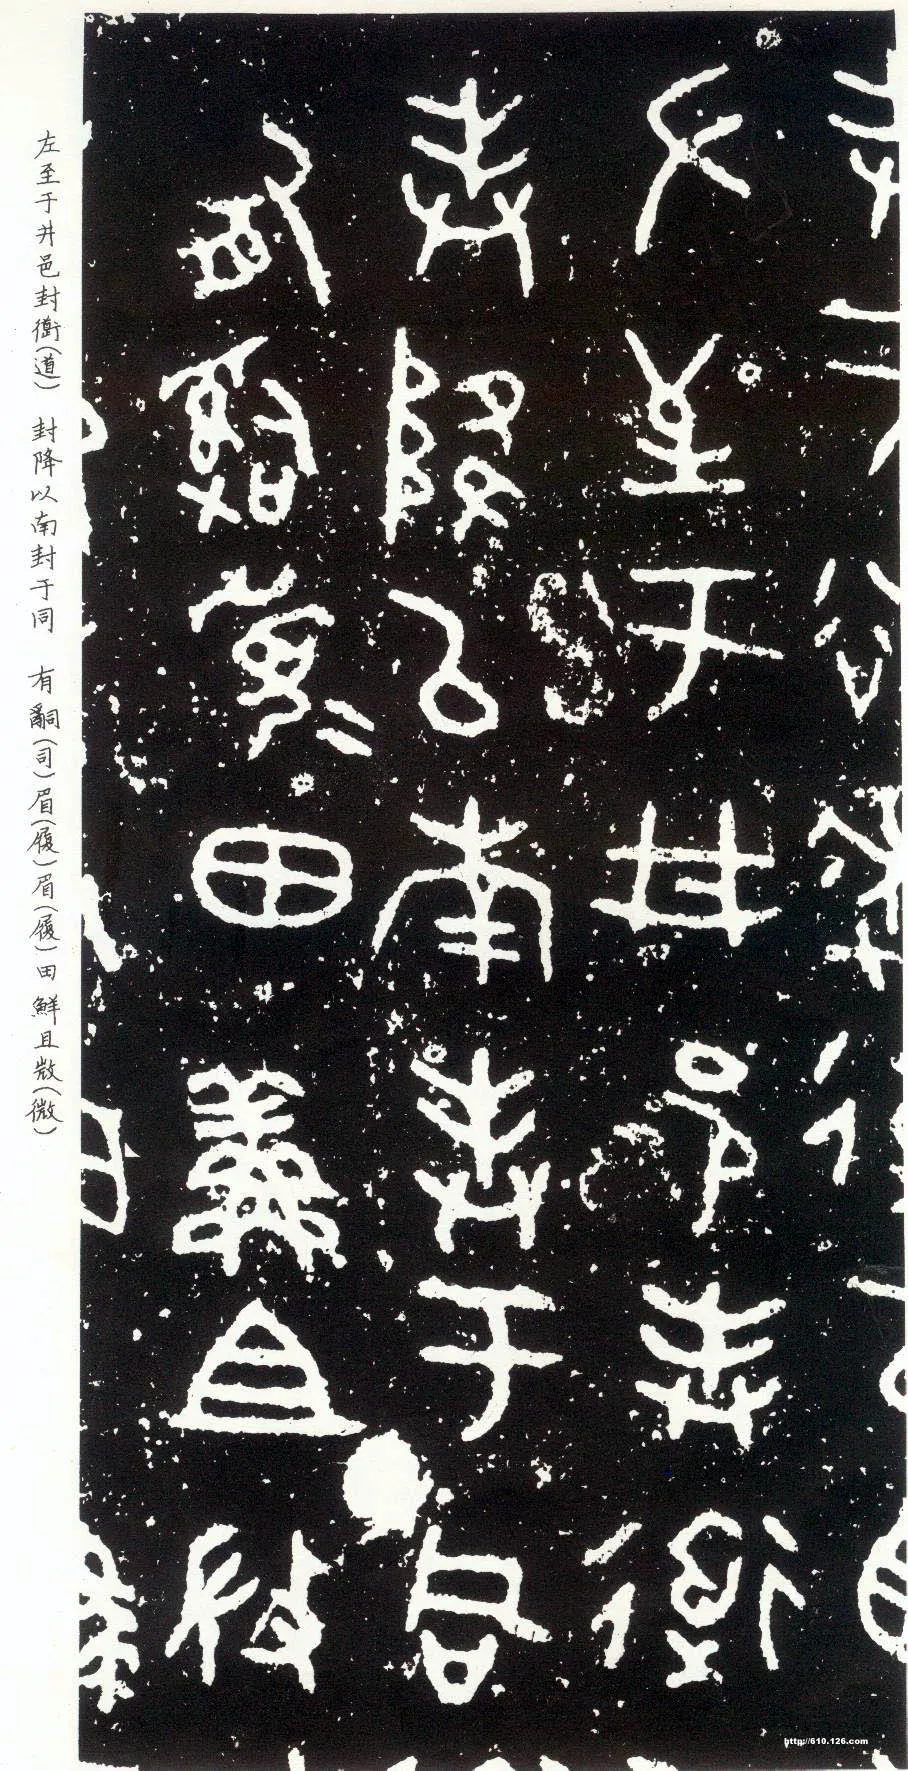 左至于井邑封衜(道)
封降以南封于同
有嗣(司)眉(履)眉(履)田鮮且㪔(微)
http://610.126.com